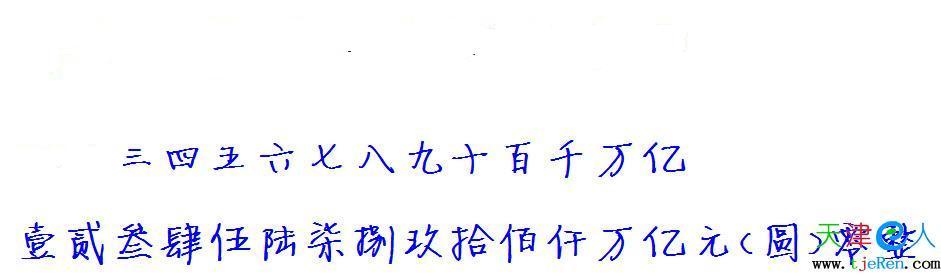 三四五六七八九十百千万亿
壹贰叁肆伍陆柒捌玖拾佰仟万亿元(圓)零整
天津人
www.tjeRen.com